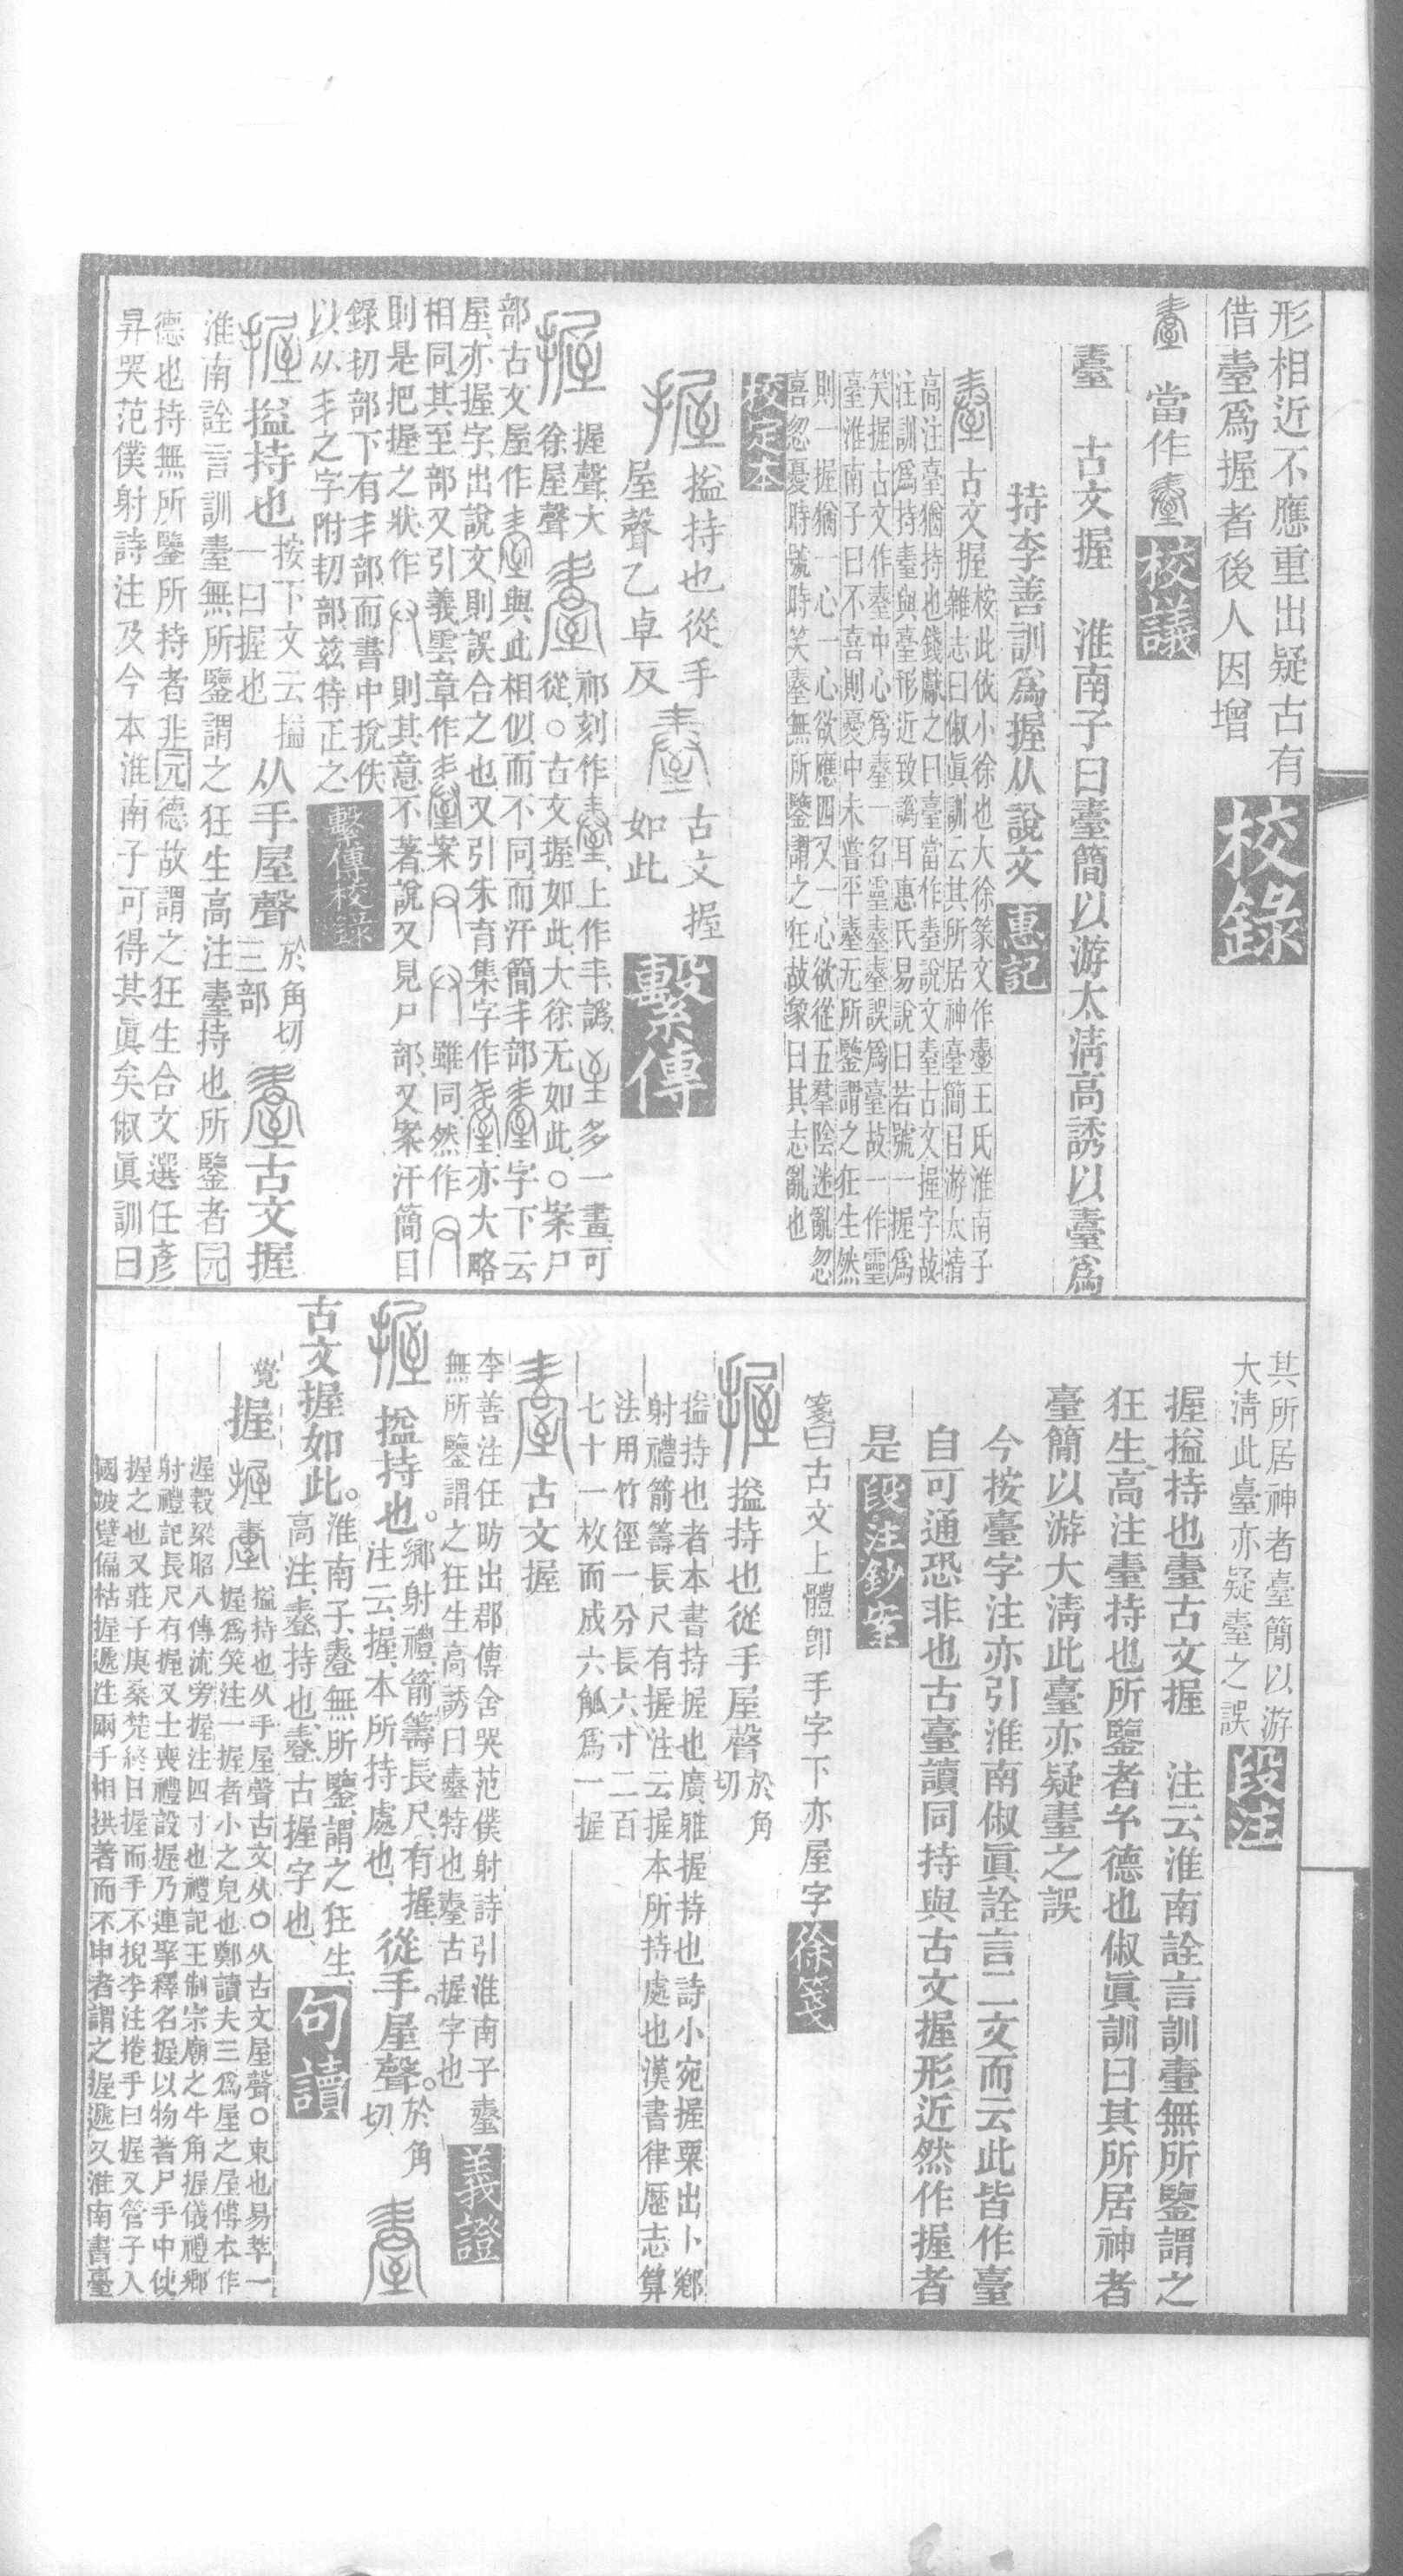 形相近不應重出疑古有
借臺爲握者後人因增
校錄
當作
校議
臺 古文握 淮南子曰臺簡以游太淸高誘以臺爲
持李善訓爲握从說文
惠記
古文握
桉此依小徐也大徐篆文作臺王氏淮南子
雜志曰俶眞訓云其所居神臺簡曰游太清
高注臺猶持也錢獻之曰臺當作說文古文握字故
注訓爲持與臺形近致譌耳惠氏易說曰若號一握爲
笑握古文作中心爲一名靈誤爲臺故一作靈
臺淮南子曰不喜則憂中未嘗平无所鑒謂之狂生然
則一握猶一心一心欲應四又一心欲從五羣陰迷亂忽
喜忽憂時號時笑無所鑒謂之狂故象曰其志亂也
校定本
握 搤持也從手
屋聲乙卓反
古文握
如此
繫傳
握 握聲大
徐屋聲
祁刻作 上作丰譌 多一畫可
從○古文握如此大徐无如此○案尸
部古文屋作 與此相似而不同而汗簡丰部 字下云
屋亦握字出說文則誤合之也又引朱育集字作 亦大略
相同其至部又引義雲章作 案 雖同然作
則是把握之狀作 則其意不著說又見尸部又案汗簡目
錄㓞部下有丰部而書中挩佚
以从丰之字附㓞部茲特正之
繫傳校錄
握 搤持也
按下文云搤
一曰握也
从手屋聲
於角切
三部
古文握
淮南詮言訓臺無所鑒謂之狂生高注臺持也所鑒者元
德也持無所鑒所持者非元德故謂之狂生合文選任彥
昇哭范僕射詩注及今本淮南子可得其眞矣俶眞訓曰
其所居神者臺簡以游
大清此臺亦疑臺之誤
段注
握搤持也臺古文握 注云淮南詮言訓臺無所鑒謂之
狂生高注臺持也所鑒者德也俶眞訓曰其所居神者
臺簡以游大淸此臺亦疑臺之誤
今按臺字注亦引淮南俶眞詮言二文而云此皆作臺
自可通恐非也古臺讀同持與古文握形近然作握者
是
段注鈔案
箋曰古文上體卽手字下亦屋字
徐箋
握 搤持也從手屋聲
於角
切
搤持也者本書持握也廣雅握持也詩小宛握粟出卜鄉
射禮箭籌長尺有握注云握本所持處也漢書律歷志算
法用竹徑一分長六寸二百
七十一枚而成六觚爲一握
古文握
李善注任昉出郡傳舍哭范僕射詩引淮南子
無所鑒謂之狂生高誘曰持也古握字也
義證
握 搤持也。
鄉射禮箭籌長尺有握
注云握本所持處也
從手。屋聲。
於角
切
古文握如此。
淮南子無所鑒謂之狂生
高注持也古握字也
句讀
覺
握
搤持也从手屋聲古文从○从古文屋聲○束也易萃一
握爲笑注一握者小之皃也鄭讀夫三爲屋之屋傅本作
渥穀梁昭八傳流旁握注四寸也禮記王制宗廟之牛角握儀禮鄉
射禮記長尺有握又士喪禮設握乃連掔釋名握以物著尸手中使
握之也又莊子庚桑楚終日握而手不掜李注捲手曰握又管子入
國跛躄偏枯握遞注兩手相拱著而不申者謂之握遞又淮南書臺